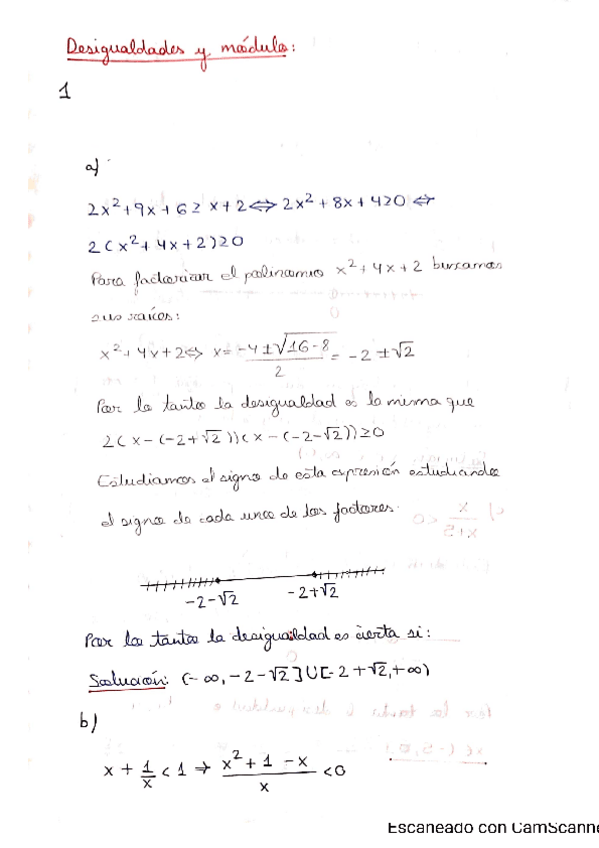 Desigualdades y módulo:
1
a)
2x²+9x+6≥x+2⇔2x²+8x+4≥0⇔
2(x²+4x+2)≥0
Para factorizar el polinomio x²+4x+2 buscamos
sus raíces:
x²+4x+2⇔ x= (-4±√16-8)/2 = -2±√2
Por lo tanto la desigualdad es la misma que
2(x-(-2+√2))(x-(-2-√2))≥0
Estudiamos el signo de esta expresión estudiando
el signo de cada uno de los factores.
-2-√2 -2+√2
Por lo tanto la desigualdad es cierta si:
Solución: (-∞,-2-√2]∪[-2+√2,+∞)
b)
x + 1/x < 1 ⇒ (x²+1-x)/x <0
Escaneado con CamScanne